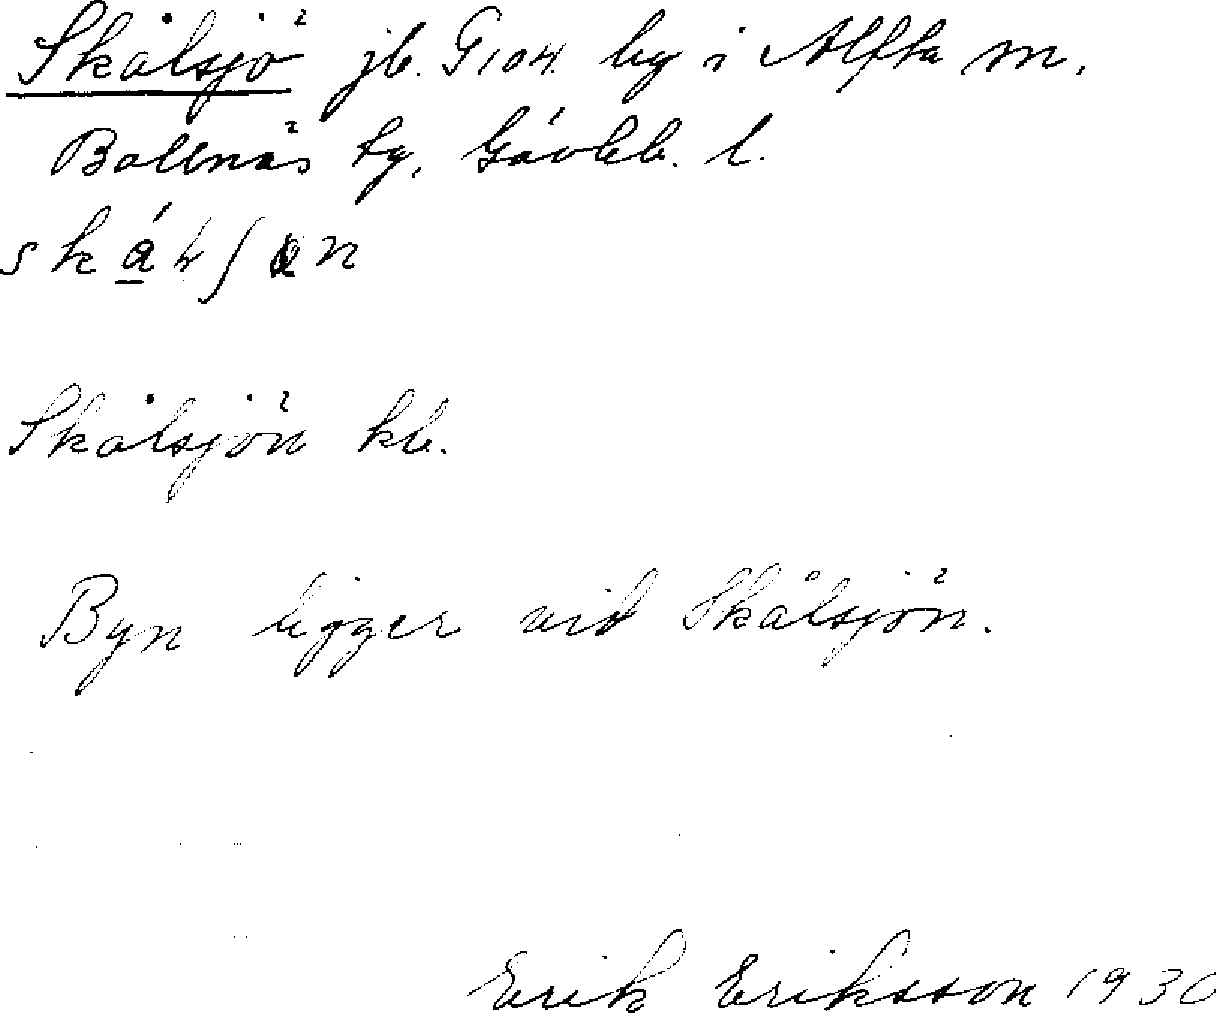 Skålsjö jb. G104. by i Alfta sn,
Bollnäs tg, Gävleb. l.
Skålsjön kb.
Byn ligger vid Skålsjön.
Erik Eriksson 1930